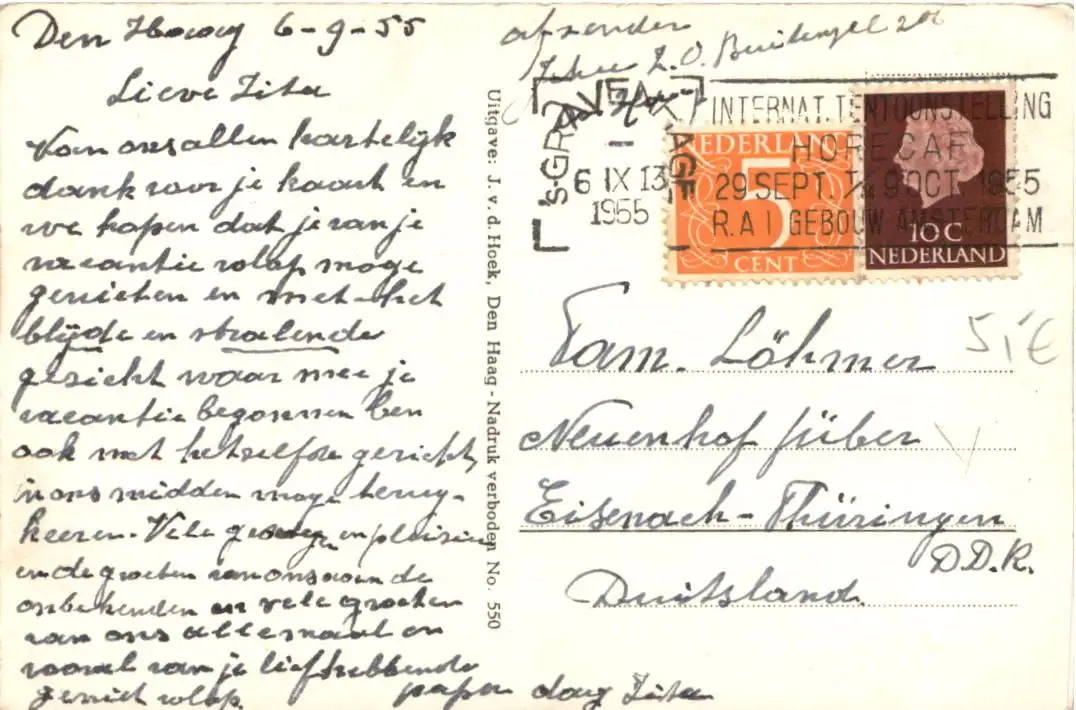 Den Haag 6-9-55
Lieve Zita
Van ons allen hartelijk
dank voor je kaart en
we hopen dat je van je
vacantie volop moge
genieten en met het
blijde en stralende
gezicht waar mee je
vacantie begonnen ben
ook met hetzelfde gezicht,
in ons midden moge terug-
keeren. Vele en plezier
en de groeten van ons aan de
onbekenden en vele groeten
van ons allemaal en
vooral van je liefhebbende
geniet volop. papa dag Zita
Uitgave: J. v. d. Hoek, Den Haag - Nadruk verboden No. 550
afzender
Z.O. Buitensingel 20
's-GRAVENHAGE
6 IX 13
1955
INTERNAT. TENTOONSTELLING
HORECAF
29 SEPT. T/M 9 OCT. 1955
R.A.I GEBOUW AMSTERDAM
NEDERLAND
5
CENT
10 C
NEDERLAND
Fam. Löhmer
Neuenhof über
Eisenach-Thüringen
D.D.R.
Duitsland.